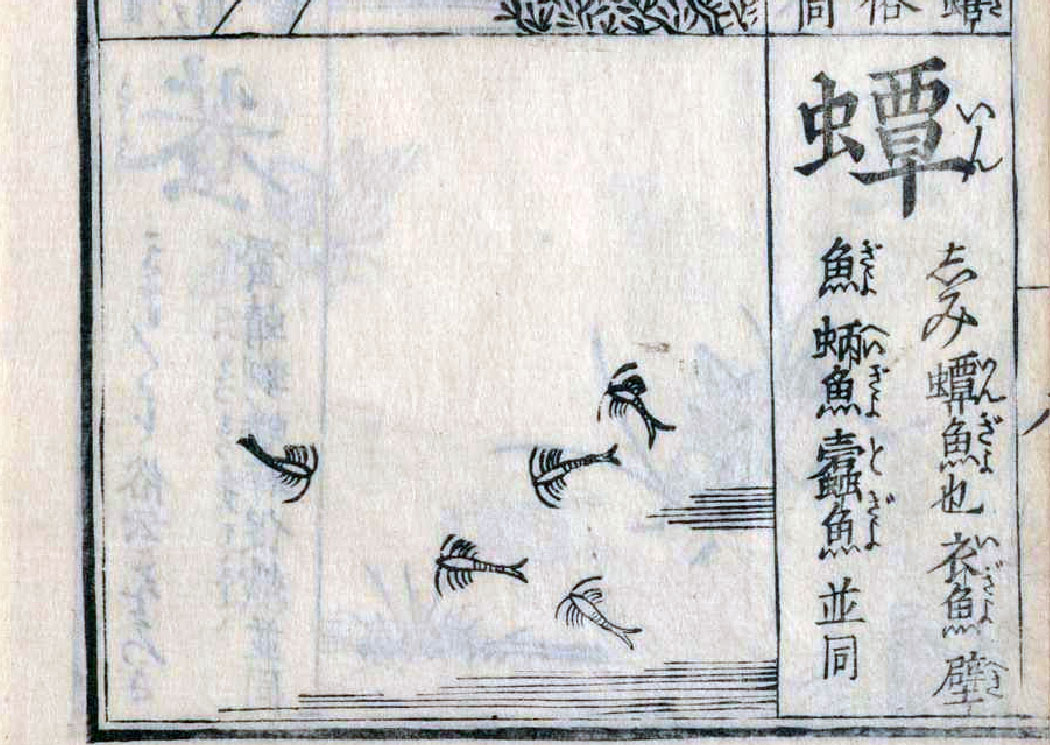 俗
同
蟫
いん
しみ蟫魚也衣魚壁
いんぎよ いぎよ へき
魚蛃魚蠹魚並同
ぎよ へいぎよ とぎよ